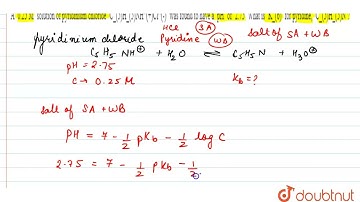 A 0.25 M solution of pyridinium chloride
was found to have a pH of 2.75. What is
for pyridine,
pyridinium chloride
HCl SA
Pyridine WB
Salt of SA + WB
C₅H₅NH⊕ + H₂O ⇌ C₅H₅N + H₃O⊕
pH = 2.75
C → 0.25 M
Kb = ?
Salt of SA + WB
PH = 7 - 1/2 pKb - 1/2 log C
2.75 = 7 - 1/2 pKb - 1/2
doubtnut